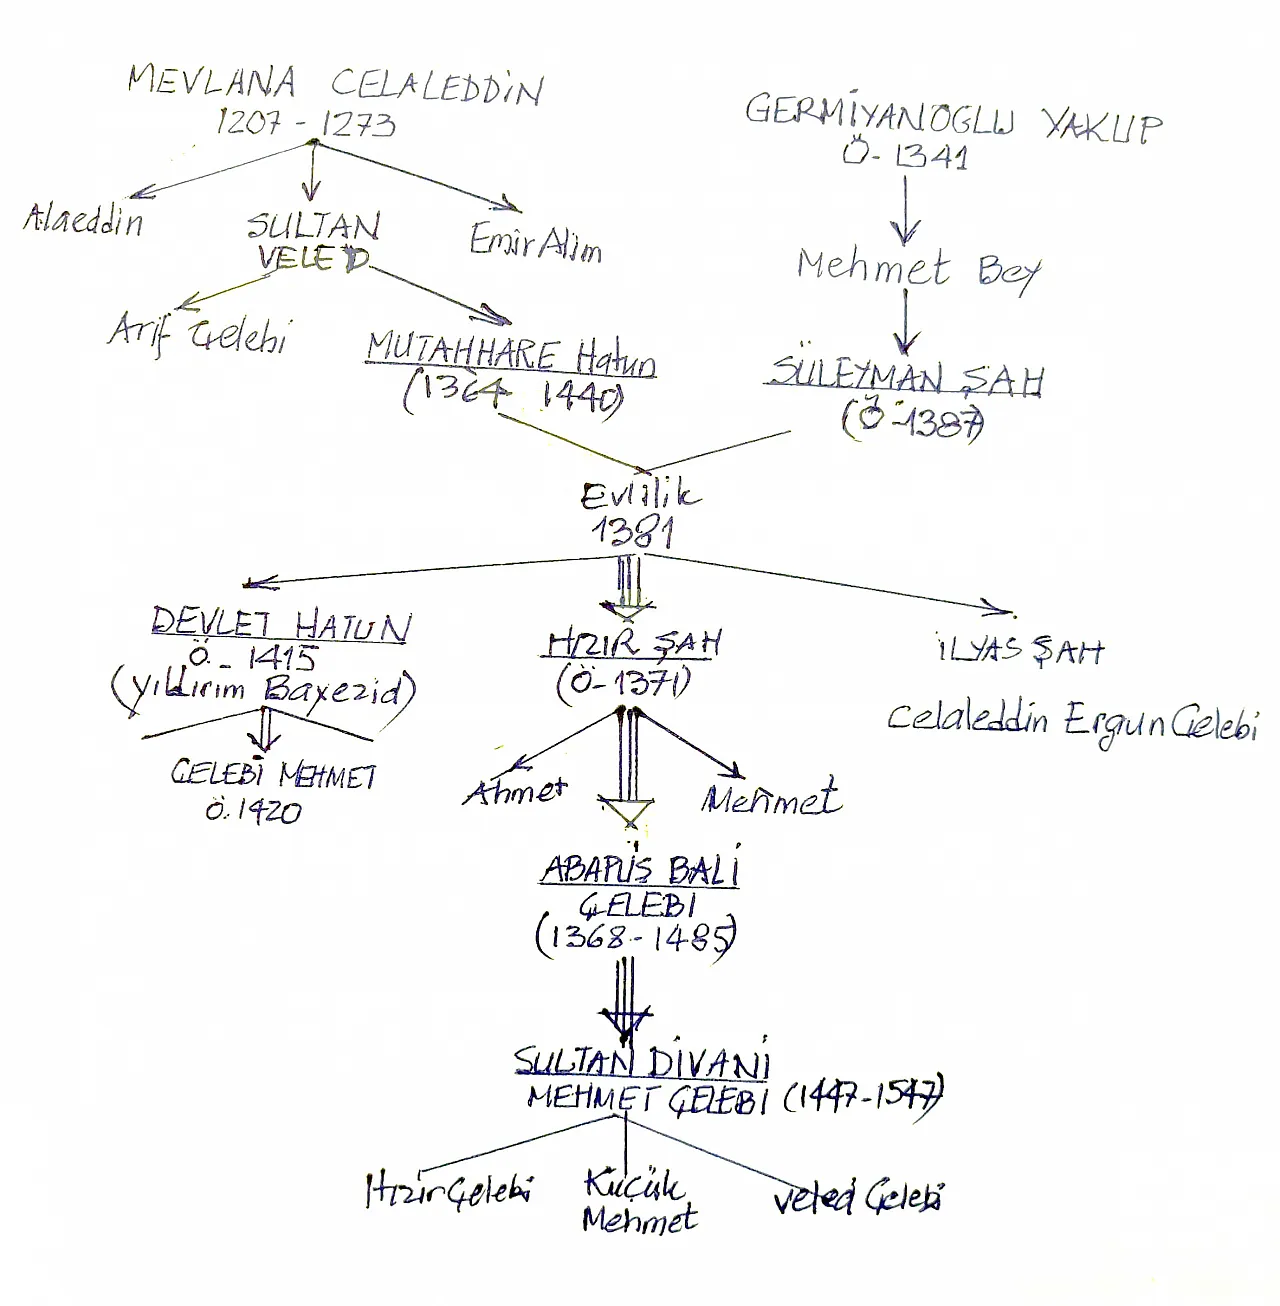 MEVLANA CELALEDDİN
1207 - 1273
GERMİYANOGLU YAKUP
Ö- 1341
Alaeddin
SULTAN
VELED
Emir Alim
Mehmet Bey
Arif Çelebi
MUTAHHARE Hatun
(1364 1440)
SÜLEYMAN ŞAH
(Ö-1387)
Evlilik
1381
DEVLET HATUN
Ö. - 1415
(yıldırım Bayezid)
HIZIR ŞAH
(Ö-1371)
İLYAS ŞAH
Celaleddin Ergun Çelebi
ÇELEBİ MEHMET
Ö. 1420
Ahmet
Mehmet
ABAPÜŞ BALİ
ÇELEBİ
(1368-1485)
SULTAN DİVANİ
MEHMET ÇELEBİ (1447-1547)
Hızır Çelebi
Küçük
Mehmet
Veled Çelebi